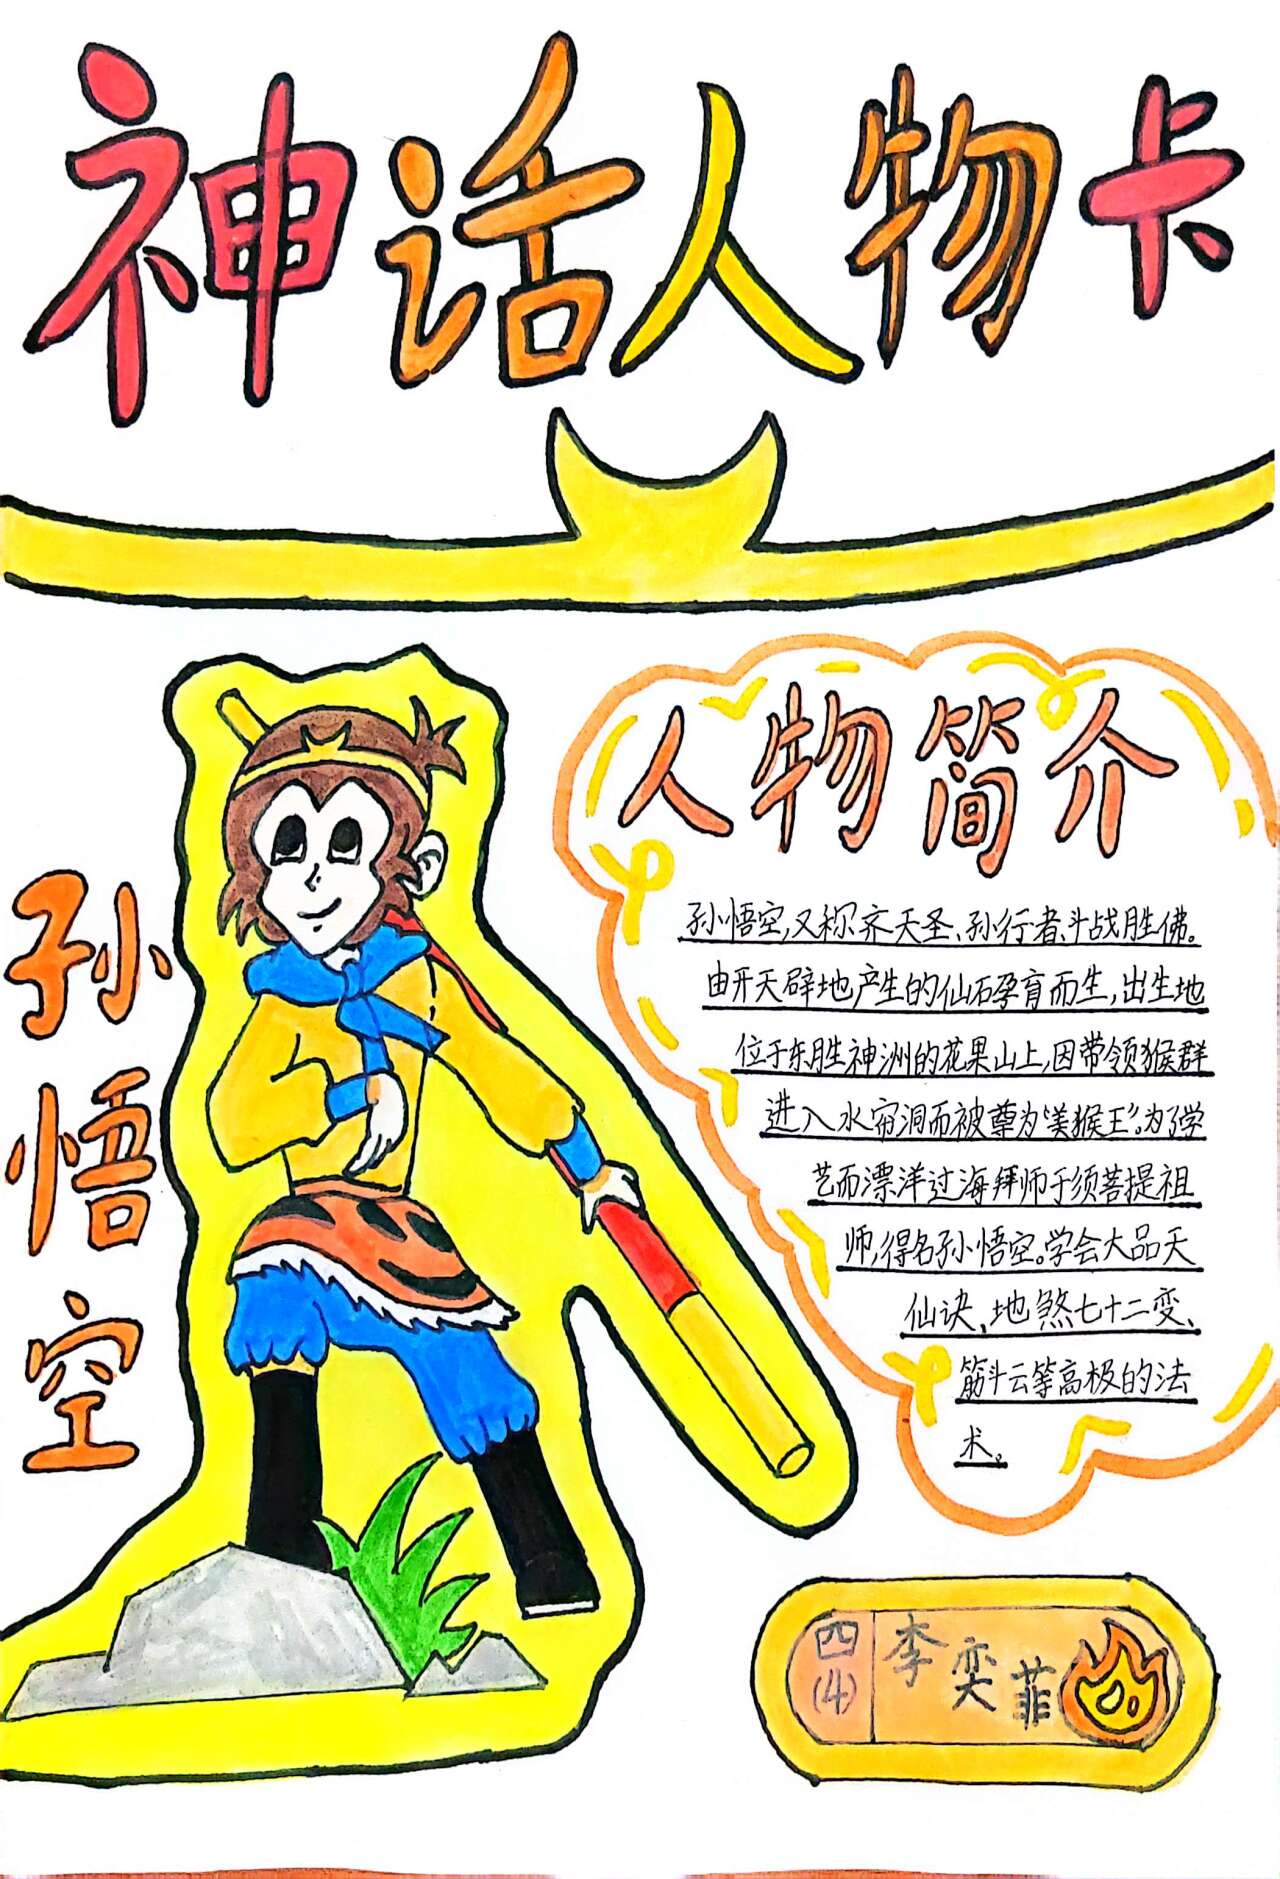 神话人物卡
孙悟空
人物简介
孙悟空,又称齐天圣、孙行者、斗战胜佛。
由开天辟地产生的仙石孕育而生,出生地
位于东胜神洲的花果山上,因带领猴群
进入水帘洞而被尊为“美猴王”。为了学
艺而漂洋过海拜师于须菩提祖
师,得名孙悟空。学会大品天
仙诀、地煞七十二变、
筋斗云等高极的法
术。
四(4) 李奕菲